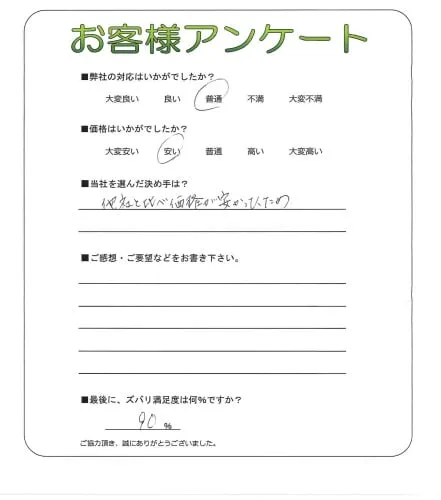 お客様アンケート
■弊社の対応はいかがでしたか?
大変良い 良い 普通 不満 大変不満
■価格はいかがでしたか?
大変安い 安い 普通 高い 大変高い
■当社を選んだ決め手は?
他社と比べ価格が安かったため
■ご感想・ご要望などをお書き下さい。
■最後に、ズバリ満足度は何%ですか?
90 %
ご協力頂き、誠にありがとうございました。